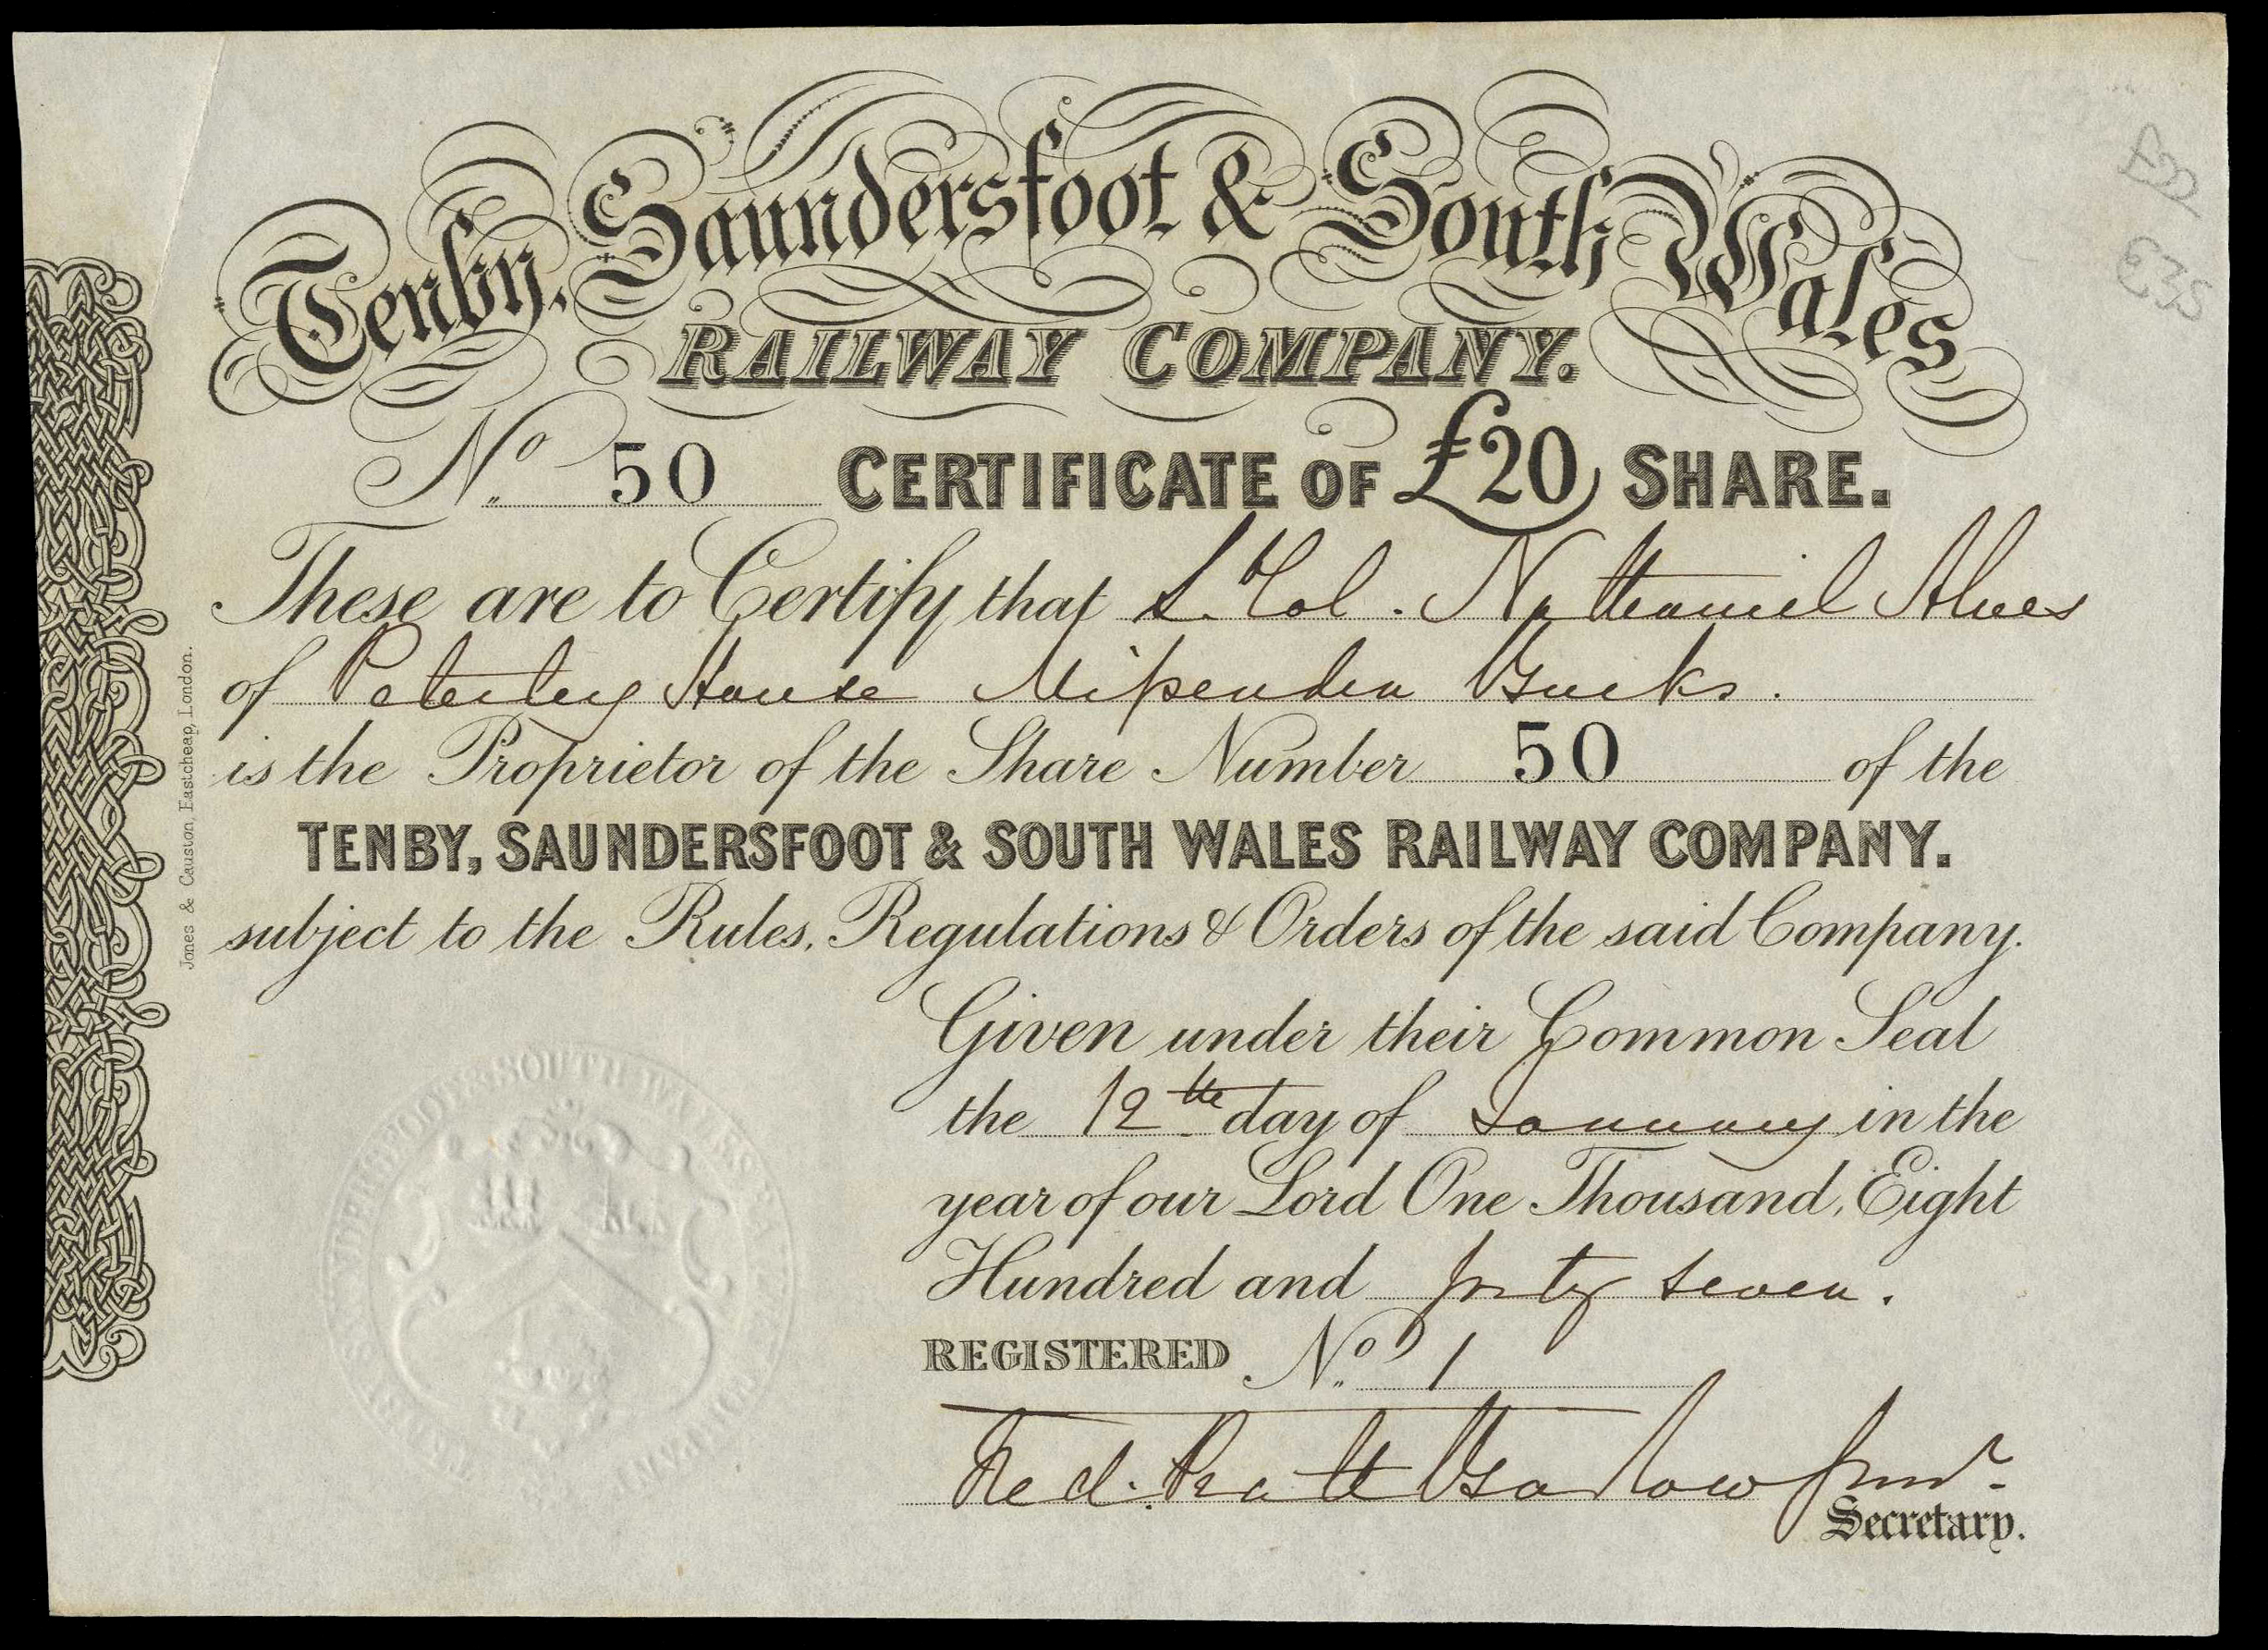 Tenby, Saundersfoot & South Wales
RAILWAY COMPANY.
No. 50 CERTIFICATE OF £20 SHARE.
These are to Certify that Lt. Col. Nathaniel Alves
of Peterley House Mipenden Bucks.
is the Proprietor of the Share Number 50 of the
TENBY, SAUNDERSFOOT & SOUTH WALES RAILWAY COMPANY.
subject to the Rules, Regulations & Orders of the said Company.
Given under their Common Seal
the 12th day of January in the
year of our Lord One Thousand, Eight
Hundred and forty seven.
REGISTERED No. 1
Fred. Pratt Barlow Junr.
Secretary.
Jones & Causton, Eastcheap, London.
TENBY SAUNDERSFOOT & SOUTH WALES RAILWAY COMPANY
£20
£35